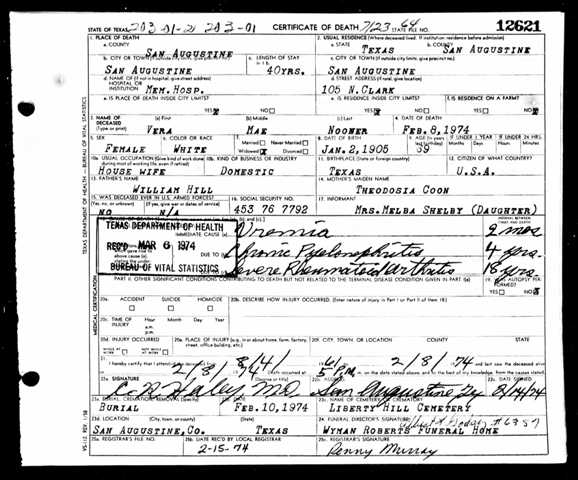 STATE OF TEXAS 203-01-21 203-01 CERTIFICATE OF DEATH 7/23 64 STATE FILE NO. 12621
1. PLACE OF DEATH 2. USUAL RESIDENCE (Where deceased lived. If institution: residence before admission)
a. COUNTY SAN AUGUSTINE a. STATE TEXAS b. COUNTY SAN AUGUSTINE
b. CITY OR TOWN (If outside city limits, give precinct no.) c. LENGTH OF STAY in 1 b. c. CITY OR TOWN (If outside city limits, give precinct no.)
SAN AUGUSTINE 40YRS. SAN AUGUSTINE
d. NAME OF (If not in hospital, give street address) HOSPITAL OR INSTITUTION MEM. HOSP. d. STREET ADDRESS (If rural, give location) 105 N. CLARK
e. IS PLACE OF DEATH INSIDE CITY LIMITS? YES NO e. IS RESIDENCE INSIDE CITY LIMITS? YES NO f. IS RESIDENCE ON A FARM? YES NO
3. NAME OF DECEASED (Type or print) (a) First (b) Middle (c) Last 4. DATE OF DEATH
VERA MAE NOONER FEB. 8, 1974
5. SEX 6. COLOR OR RACE 7. Married Never Married Widowed Divorced 8. DATE OF BIRTH 9. AGE (In years last birthday) IF UNDER 1 YEAR Months Days IF UNDER 24 HRS. Hours Minutes
FEMALE WHITE JAN. 2, 1905
10a. USUAL OCCUPATION (Give kind of work done during most of working life, even if retired) 10b. KIND OF BUSINESS OR INDUSTRY 11. BIRTHPLACE (State or foreign country) 12. CITIZEN OF WHAT COUNTRY?
HOUSE WIFE DOMESTIC TEXAS U.S.A.
13. FATHER'S NAME 14. MOTHER'S MAIDEN NAME
WILLIAM HILL THEODOSIA COON
15. WAS DECEASED EVER IN U.S. ARMED FORCES? (If yes, give war or dates of service) 16. SOCIAL SECURITY NO. 17. INFORMANT
NO N/A 453 76 7792 MRS. MELBA SHELBY (DAUGHTER)
TEXAS DEPARTMENT OF HEALTH
REC'D MAR 6 1974
BUREAU OF VITAL STATISTICS
IMMEDIATE CAUSE (a) Uremia 2 mos
DUE TO Chronic Pyelonephritis 4 yrs.
Severe Rheumatoid Arthritis 18 yrs.
PART II. OTHER SIGNIFICANT CONDITIONS CONTRIBUTING TO DEATH BUT NOT RELATED TO THE TERMINAL DISEASE CONDITION GIVEN IN PART I(a) 19. WAS AUTOPSY PERFORMED? YES NO
20a. ACCIDENT SUICIDE HOMICIDE 20b. DESCRIBE HOW INJURY OCCURRED. (Enter nature of injury in Part I or Part II of item 18)
20c. TIME OF INJURY Hour a.m. p.m. Month Day Year
20d. INJURY OCCURRED WHILE AT WORK NOT WHILE AT WORK 20e. PLACE OF INJURY (e.g., in or about home, farm, factory, street, office building, etc.) 20f. CITY, TOWN, OR LOCATION COUNTY STATE
21. I hereby certify that I attended the deceased from 2/8/74 and last saw the deceased alive
5 P.M. on the date stated above; and to the best of my knowledge, from the causes stated.
22a. SIGNATURE (Degree or title) 22b. ADDRESS 22c. DATE SIGNED
Haley MD San Augustine Tx 2/14/74
23a. BURIAL, CREMATION, REMOVAL (Specify) 23b. DATE 23c. NAME OF CEMETERY OR CREMATORY
BURIAL FEB. 10, 1974 LIBERTY HILL CEMETERY
23d. LOCATION (City, town, or county) (State) 24. FUNERAL DIRECTOR'S SIGNATURE
SAN AUGUSTINE, CO. TEXAS WYMAN ROBERTS FUNERAL HOME
25a. REGISTRAR'S FILE NO. 25b. DATE REC'D BY LOCAL REGISTRAR 25c. REGISTRAR'S SIGNATURE
2-15-74 Penny Murray
TEXAS DEPARTMENT OF HEALTH - BUREAU OF VITAL STATISTICS
MEDICAL CERTIFICATION